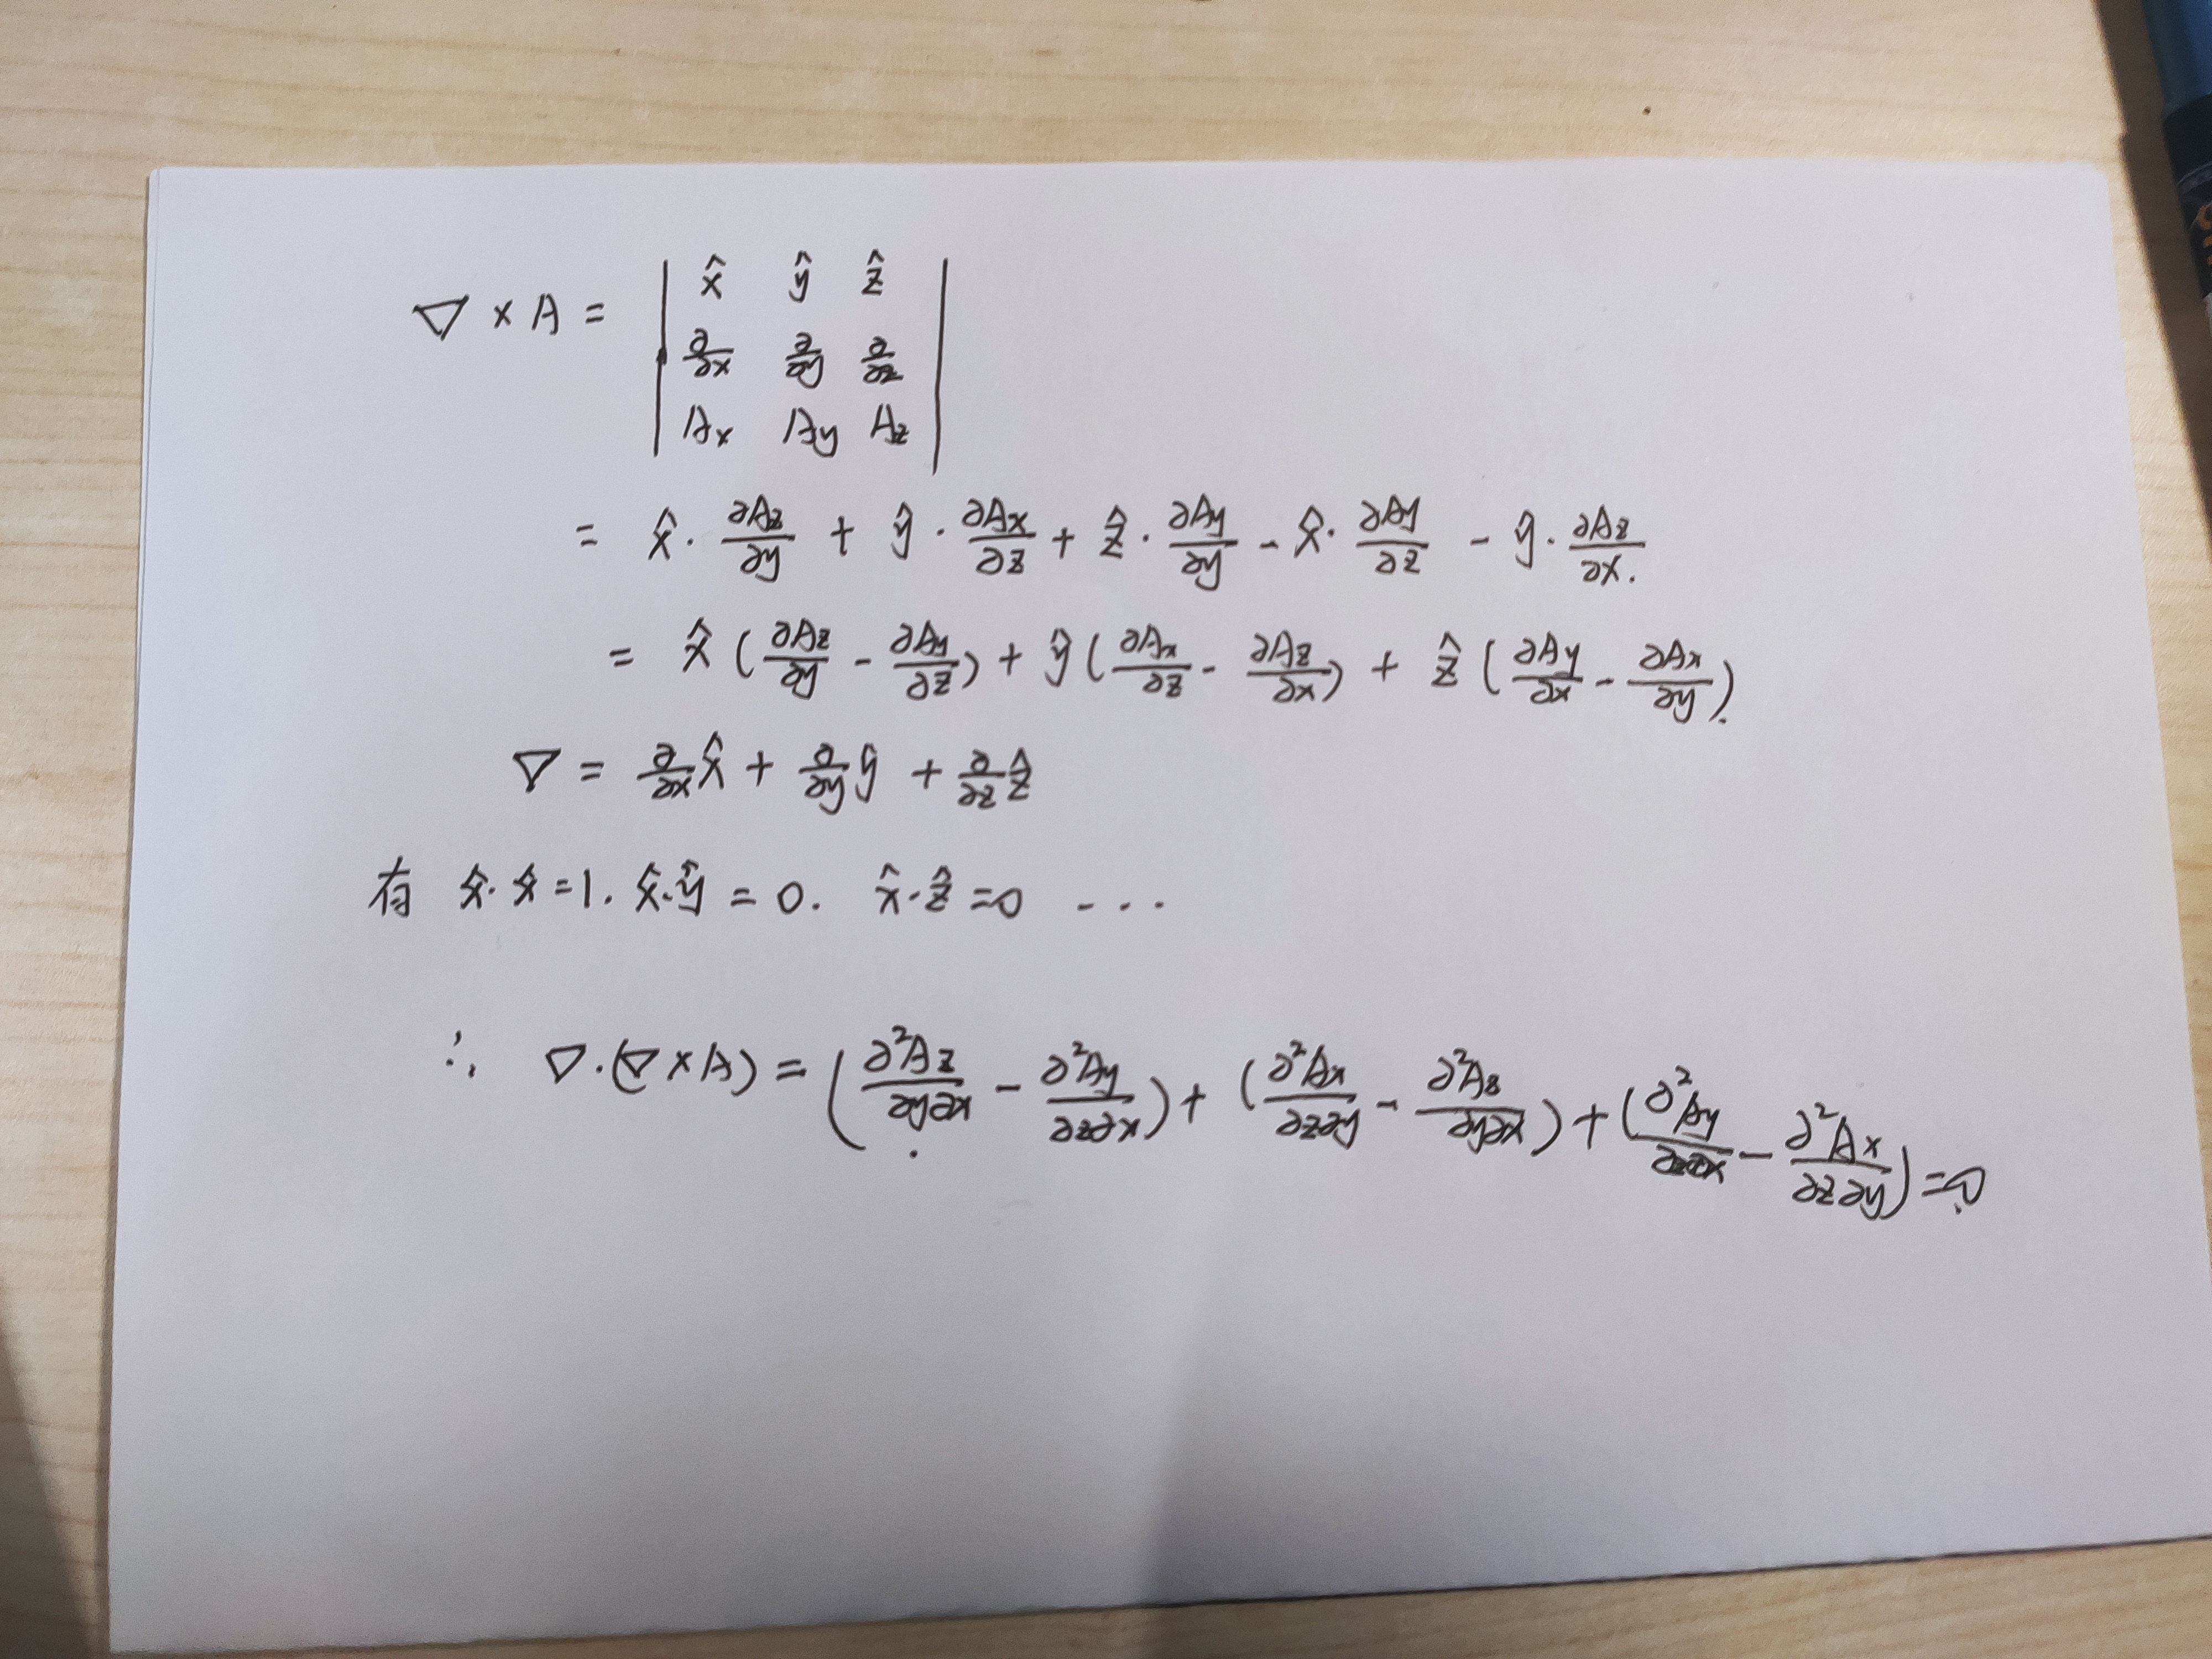 ∇ × A = | x̂ ŷ ẑ |
| ∂/∂x ∂/∂y ∂/∂z |
| Ax Ay Az |
= x̂ · ∂Az/∂y + ŷ · ∂Ax/∂z + ẑ · ∂Ay/∂y - x̂ · ∂Ay/∂z - ŷ · ∂Az/∂x.
= x̂ (∂Az/∂y - ∂Ay/∂z) + ŷ (∂Ax/∂z - ∂Az/∂x) + ẑ (∂Ay/∂x - ∂Ax/∂y).
∇ = ∂/∂x x̂ + ∂/∂y ŷ + ∂/∂z ẑ
有 x̂·x̂=1. x̂·ŷ=0. x̂·ẑ=0 ...
∴ ∇·(∇×A) = (∂²Az/∂y∂x - ∂²Ay/∂z∂x) + (∂²Ax/∂z∂y - ∂²Az/∂y∂x) + (∂²Ay/∂z∂x - ∂²Ax/∂z∂y) = 0